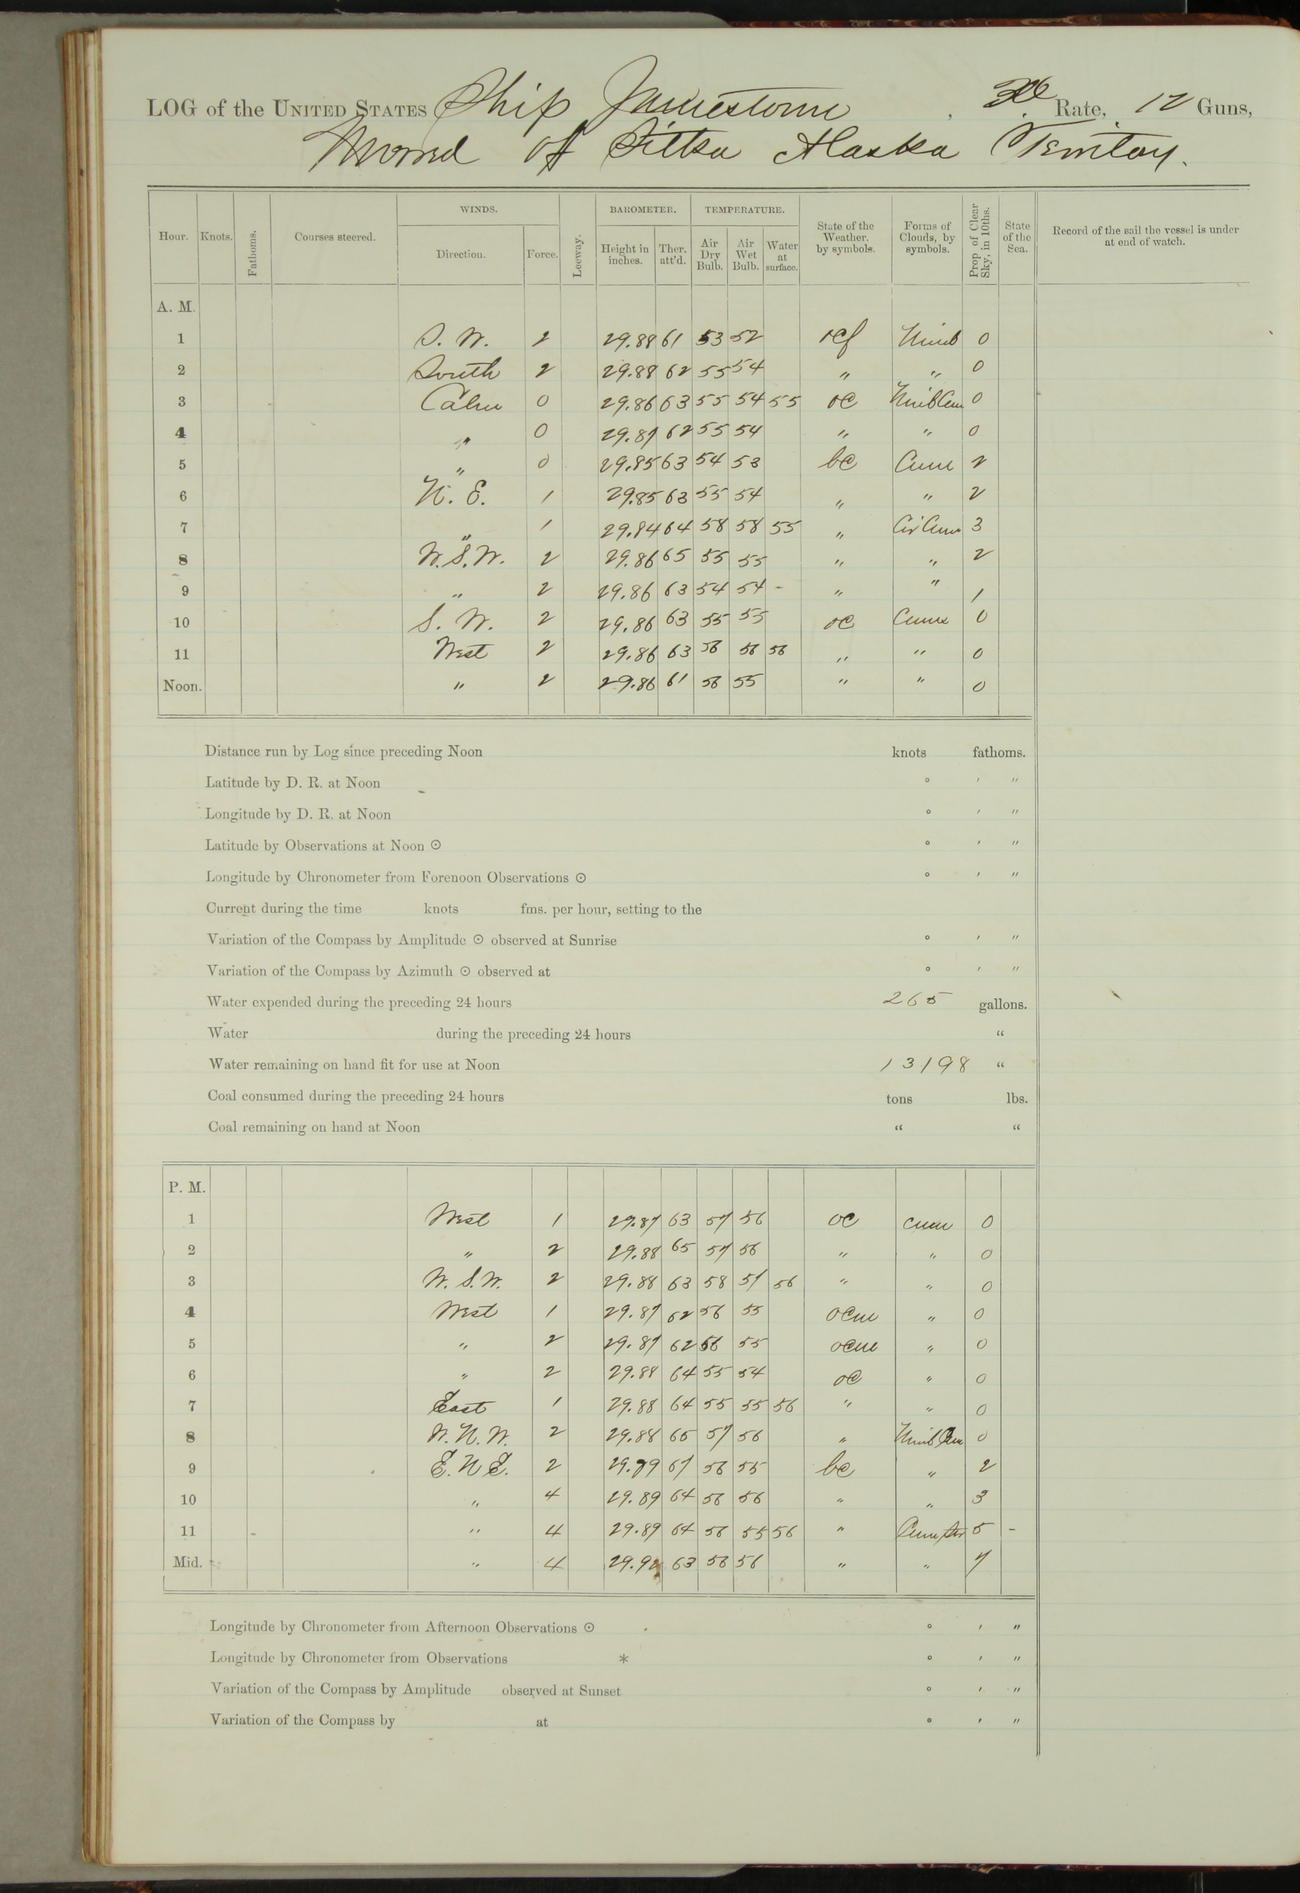 LOG of the UNITED STATES Ship Jamestown, 3rd Rate, 12 Guns,
Moored of Sitka Alaska Territoy.
Hour. Knots. Fathoms. Courses steered. WINDS. Direction. Force. Leeway. BAROMETER. Height in inches. Ther. att'd. TEMPERATURE. Air Dry Bulb. Air Wet Bulb. Water at surface. State of the Weather, by symbols. Forms of Clouds, by symbols. Prop. of Clear Sky, in 10ths. State of the Sea. Record of the sail the vessel is under at end of watch.
A. M.
1 S. W. 2 29.88 61 53 52 ocf Nimb 0
2 South 2 29.88 62 55 54 " " 0
3 Calm 0 29.86 63 55 54 55 oc Nimb Cum 0
4 " 0 29.87 62 55 54 " " 0
5 " 0 29.85 63 54 53 bc Cum 2
6 N. E. 1 29.85 63 55 54 " " 2
7 " 1 29.84 64 58 58 55 " Cir Cum 3
8 W.S.W. 2 29.86 65 55 55 " " 2
9 " 2 29.86 63 54 54 - " " 1
10 S. W. 2 29.86 63 55 55 oc Cum 0
11 West 2 29.86 63 56 56 56 " " 0
Noon. " 2 29.86 61 56 55 " " 0
Distance run by Log since preceding Noon knots fathoms.
Latitude by D. R. at Noon ° ' "
Longitude by D. R. at Noon ° ' "
Latitude by Observations at Noon ☉ ° ' "
Longitude by Chronometer from Forenoon Observations ☉ ° ' "
Current during the time knots fms. per hour, setting to the
Variation of the Compass by Amplitude ☉ observed at Sunrise ° ' "
Variation of the Compass by Azimuth ☉ observed at ° ' "
Water expended during the preceding 24 hours 265 gallons.
Water during the preceding 24 hours “
Water remaining on hand fit for use at Noon 13198 “
Coal consumed during the preceding 24 hours tons lbs.
Coal remaining on hand at Noon “ “
P. M.
1 West 1 29.87 63 57 56 oc Cum 0
2 " 2 29.88 65 57 56 " " 0
3 W. S.W. 2 29.88 63 58 57 56 " " 0
4 West 1 29.87 62 56 55 ocm " 0
5 " 2 29.87 62 56 55 ocm " 0
6 " 2 29.88 64 55 54 oc " 0
7 East 1 29.88 64 55 55 56 " " 0
8 W. N. W. 2 29.88 65 57 56 " Nimb Cum 0
9 E. N E. 2 29.79 67 56 55 bc " 2
10 " 4 29.89 64 56 56 " " 3
11 " 4 29.89 64 56 55 56 " Cum Str 5 -
Mid. " 4 29.92 63 56 56 " " 7
Longitude by Chronometer from Afternoon Observations ☉ ° ' "
Longitude by Chronometer from Observations * ° ' "
Variation of the Compass by Amplitude observed at Sunset ° ' "
Variation of the Compass by at ° ' "